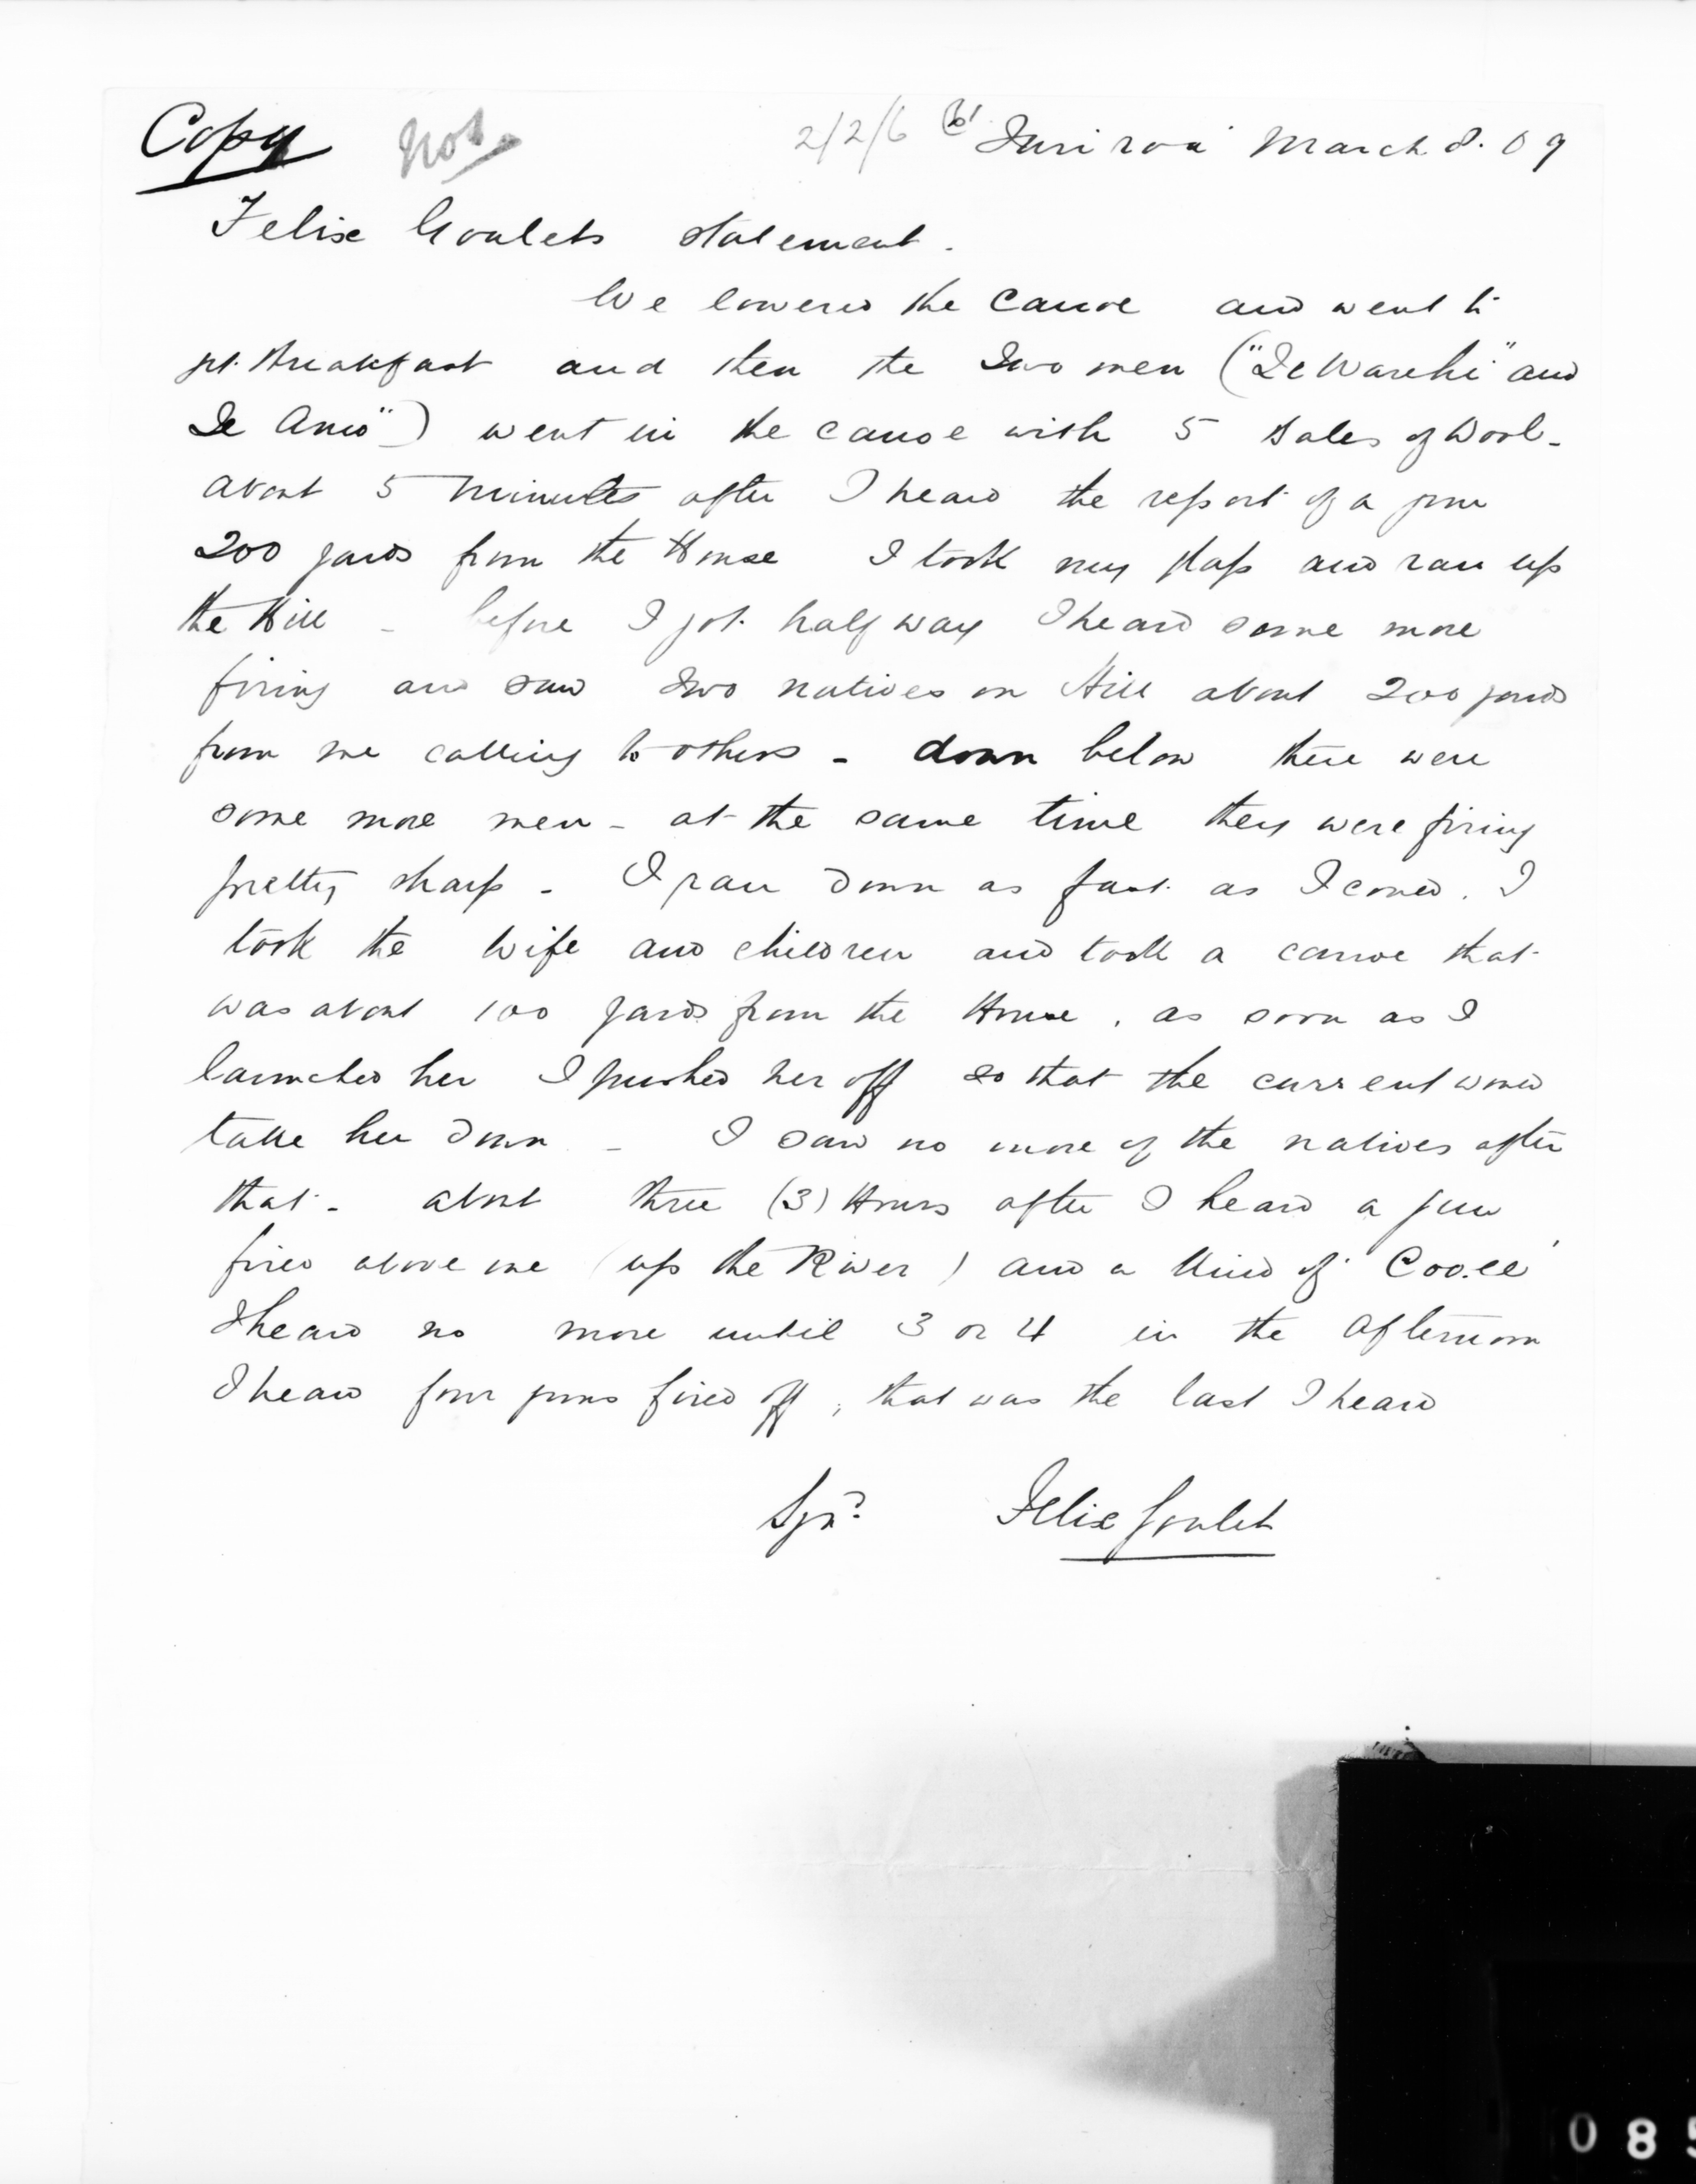 Copy 2/2/6 Turiroa March 8. 09
Felix Goulets statement.
We lowered the Canoe and went to
get Breakfast and then the two men ("Te Warihi" and
Te Amo") went in the canoe with 5 Bales of Wool -
about 5 minutes after I heard the report of a gun
200 yards from the House I took my glass and ran up
the Hill - before I got half way I heard some more
firing and saw two natives on Hill about 200 yards
from me calling to others - down below there were
some more men - at the same time they were firing
pretty sharp - I ran down as fast as I could. I
took the Wife and children and took a canoe that
was about 100 yards from the House, as soon as I
launched her I pushed her off so that the current would
take her down - I saw no more of the natives after
that - about three (3) Hours after I heard a gun
fired above me (up the River) and a kind of 'Coo.ee'
I heard no more until 3 or 4 in the afternoon
I heard four guns fired off, that was the last I heard
Sgnd Felix Goulet
085